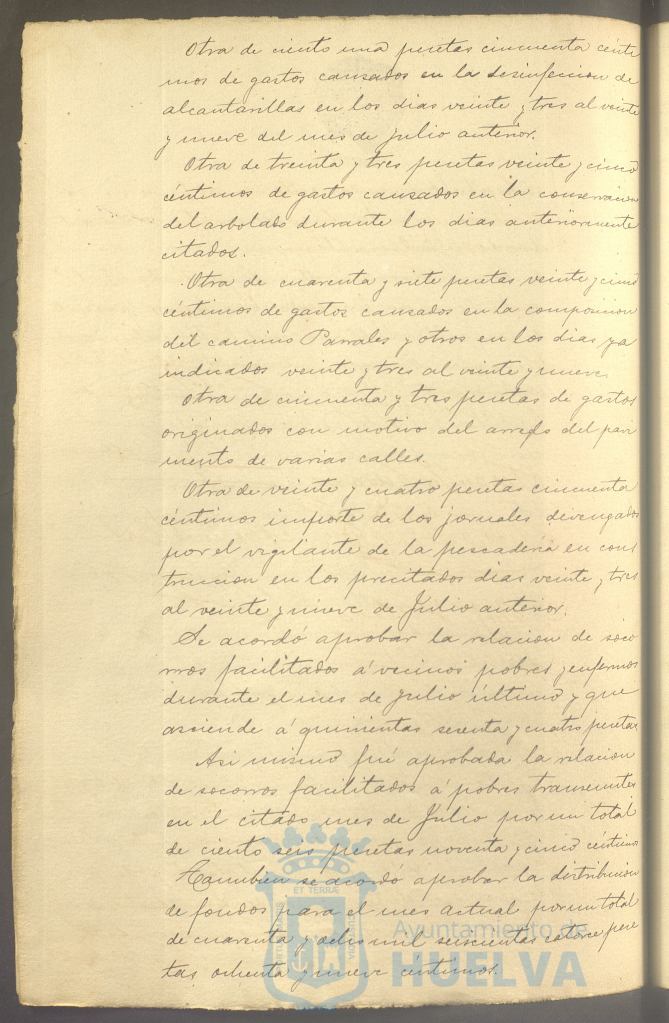 Otra de ciento una pesetas cincuenta cénti
mos de gastos causados en la desinfeccion de
alcantarillas en los dias veinte y tres al veinte
y nueve del mes de Julio anterior.
Otra de treinta y tres pesetas veinte y cinco
céntimos de gastos causados en la conservacion
del arbolado durante los dias anteriormente
citados.
Otra de cuarenta y siete pesetas veinte y cinco
céntimos de gastos causados en la composicion
del camino Parrales y otros en los dias ya
indicados veinte y tres al veinte y nueve.
Otra de cincuenta y tres pesetas de gastos
originados con motivo del arreglo del pavi
mento de varias calles.
Otra de veinte y cuatro pesetas cincuenta
céntimos importe de los jornales devengados
por el vigilante de la pescaderia en cons
truccion en los precitados dias veinte y tres
al veinte y nueve de Julio anterior.
Se acordó aprobar la relacion de soco
rros facilitados á vecinos pobres y enfermos
durante el mes de Julio último y que
asciende á quinientas sesenta y cuatro pesetas
Asi mismo fué aprobada la relacion
de socorros facilitados á pobres transeuntes
en el citado mes de Julio por un total
de ciento seis pesetas noventa y cinco céntimos
Tambien se acordo aprobar la distribucion
de fondos para el mes actual por un total
de cuarenta y ocho mil seiscientas catorce pese
tas ochenta y nueve céntimos.
ET TERRÆ
Ayuntamiento de
HUELVA